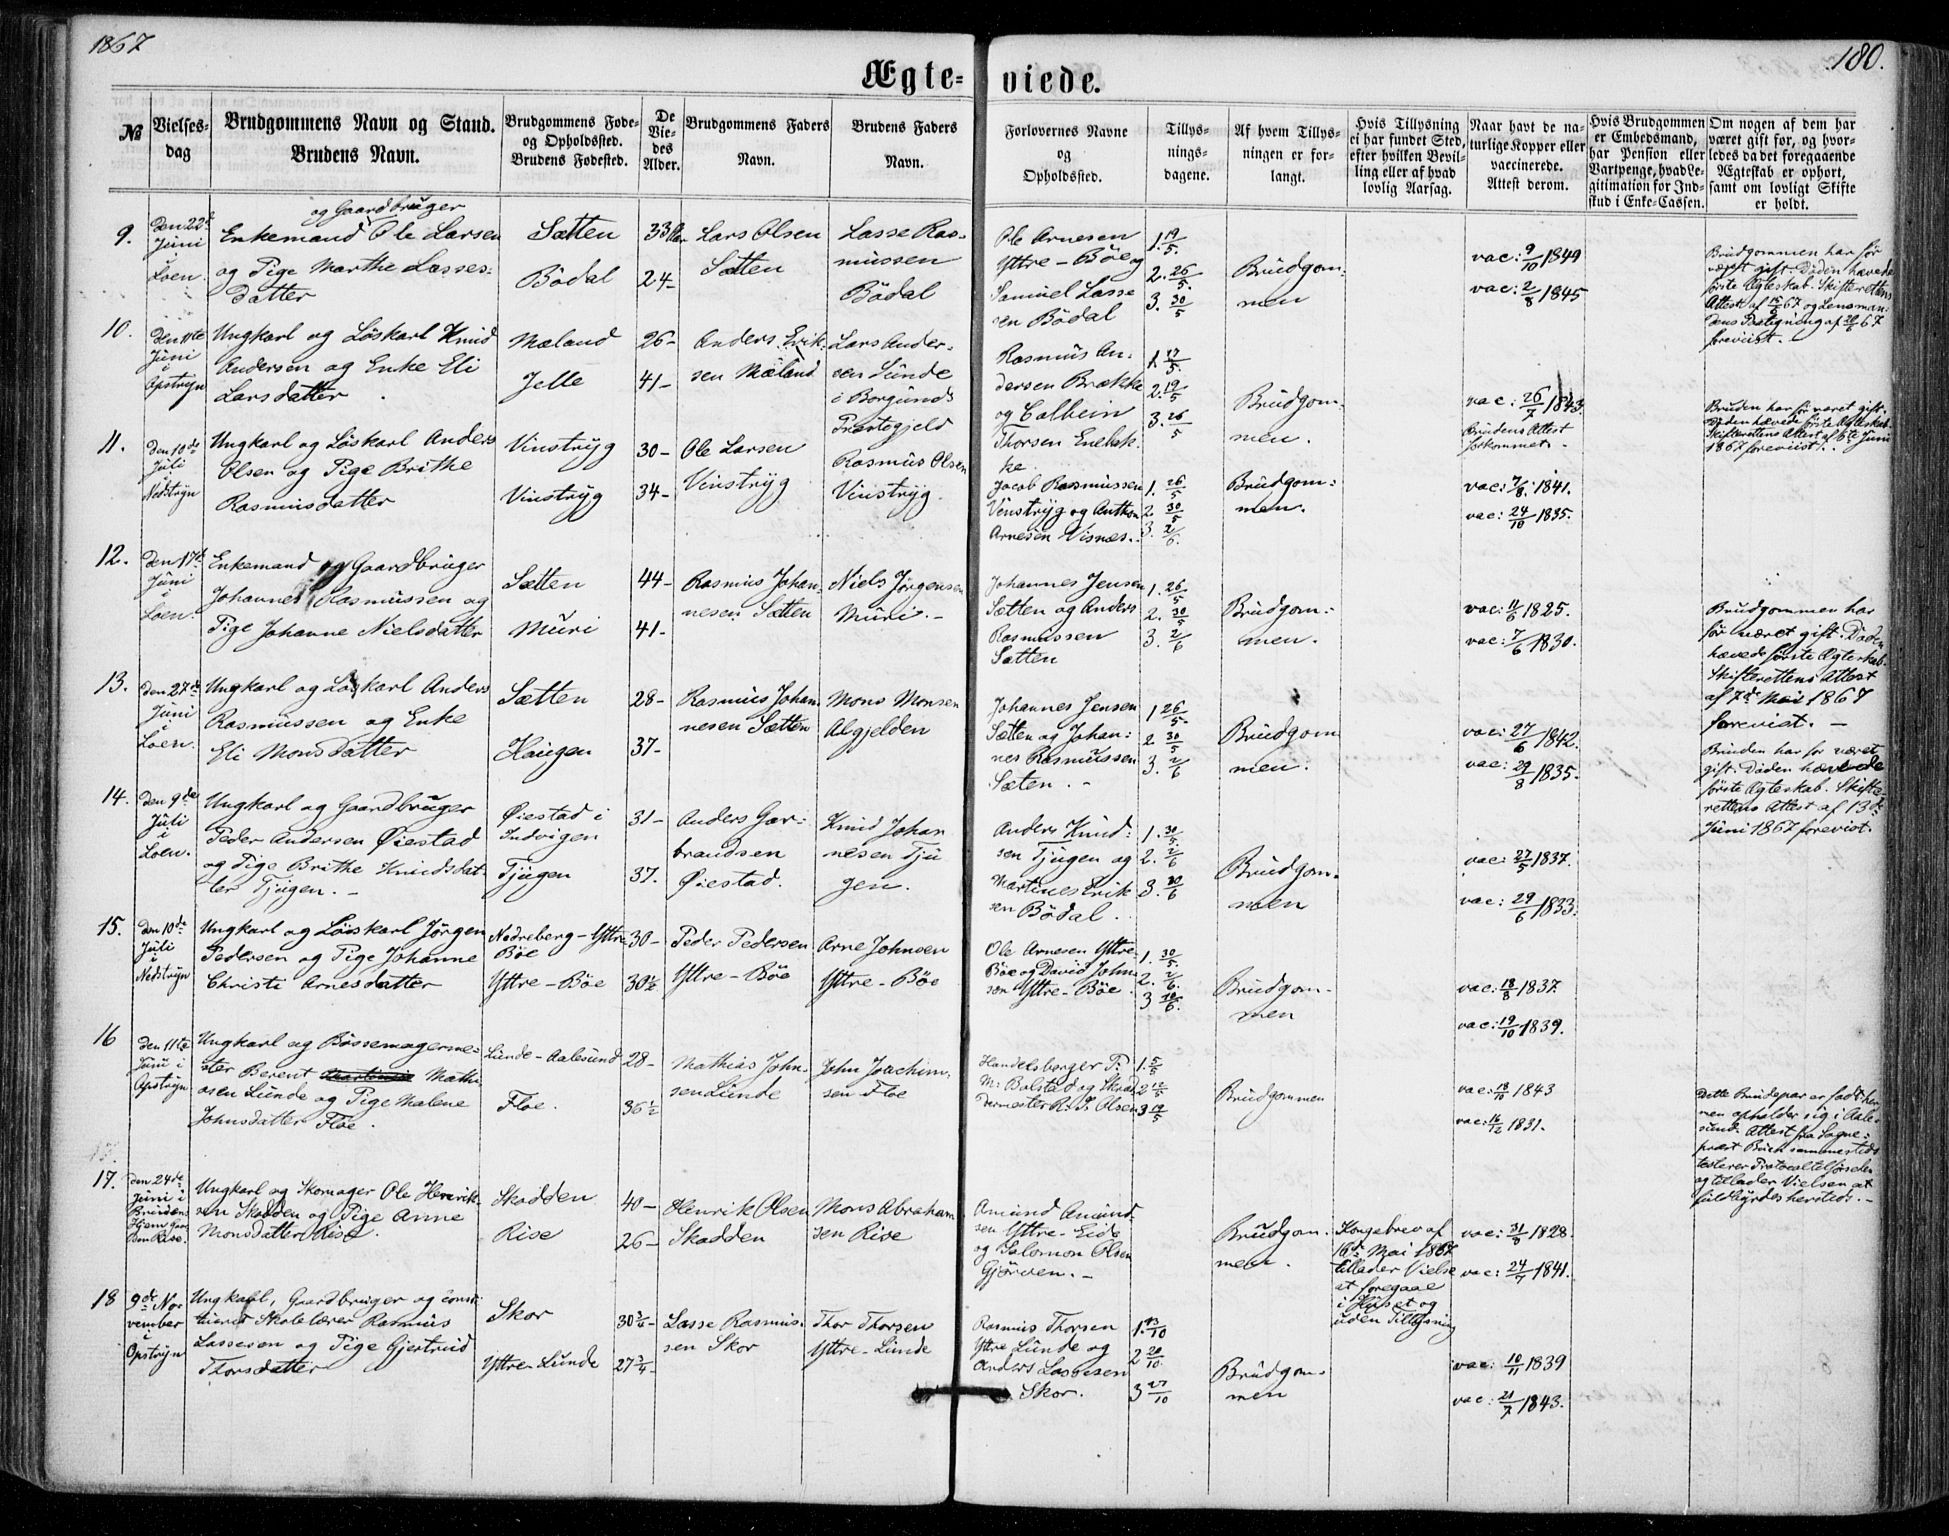 1867
180.
Ægte= viede.
№
Vielses-
dag
Brudgommens Navn og Stand.
Brudens Navn.
Brudgommens Føde-
og Opholdssted.
Brudens Fødested.
De
Vie-
des
Alder.
Brudgommens Faders
Navn.
Brudens Faders
Navn.
Forlovernes Navne
og
Opholdssted.
Tillys-
nings-
dagene.
Af hvem Tillys-
ningen er for-
langt.
Hvis Tillysning
ei har fundet Sted,
efter hvilken Bevil-
ling eller af hvad
lovlig Aarsag.
Naar havt de na-
turlige Kopper eller
vaccinerede.
Attest derom.
Hvis Brudgommen
er Embedsmand,
har Pension eller
Vartpenge, hvad Le-
gitimation for Ind-
skud i Enke-Cassen.
Om nogen af dem har
været gift før, og hvor-
ledes da det foregaaende
Ægteskab er ophørt,
samt om lovligt Skifte
er holdt.
9.
Den 22de
Juni
i
Loen.
og Gaardbruger
Enkemand Ole Larsen
og Pige Marthe Lasses-
datter
Sætten
Bødal
33
24-
Lars Olsen
Sætten
Lasse Ras-
mussen
Bødal
Ole Arnesen
Yttre-Böe og
Samuel Lasse
sen Bödal
1. 19/5.
2. 26/5.
3. 30/5
Brudgom-
men
vac: 9/10 1849
vac: 2/8 1845
Brudgommen har før
været gift. Döden hævede
første Ægteskab. Skifterettens
Attest af 15/5 67 og Lensman-
dens Paategning af 20/6 67
forevist.
10.
Den 11te
Juni
i
Opstryn
Ungkarl og Löskarl Knud
Andersen og Enke Eli
Larsdatter
Mæland
Jelle
26-
41-
Anders Erik-
sen Mæland
Lars Ander-
sen Lunde
i Borgunds
Præstegjeld
Rasmus An-
dersen Brække
og Colbein
Thorsen Enebak-
ke.
1. 17/5.
2. 19/5
3. 26/5
Brudgom-
men.
vac: 26/7 1843.
Brudens Attest
forkommet.
Bruden har før været gift.
Döden hævede første Ægteskab.
Skifterettens Attest af 6te Juni
1867 forevist.
11.
Den 10de
Juli
i
Nedstryn
Ungkarl og Löskarl Anders
Olsen og Pige Brithe
Rasmusdatter
Vinstryg
Vinstryg
30-
34-
Ole Larsen
Vinstryg
Rasmus Olsen
Vinstryg.
Jacob Rasmussen
Vinstryg og Anthon
Arnesen Visnes.
1. 26/5
2. 30/5
3. 2/6.
Brudgom-
men.
vac: 7/8 1841.
vac: 24/10 1835.
12.
Den 17de
Juni
i
Loen.
Enkemand og Gaardbruger
Johannes Rasmussen og
Pige Johanne Nielsdatter
Sætten
Muri
44-
41-
Rasmus Johan-
nesen Sætten
Niels Jørgensen
Muri.-
Johannes Jensen
Sætten og Anders
Rasmussen
Sætten
1. 26/5
2. 30/5
3. 2/6
Brudgom-
men.
vac: 11/6 1825.
vac: 7/6 1830.
Brudgommen har
før været gift. Döden
hævede første Ægteskab.
Skifterettens Attest
af 7de Mai 1867
forevist.-
13.
Den 27de
Juni
i
Loen.
Ungkarl og Löskarl Anders
Rasmussen og Enke
Eli Monsdatter
Sætten
Haugen
28-
37-
Rasmus Johan-
nesen Sætten
Mons Monsen
Algjelden
Johannes Jensen
Sætten og Johan-
nes Rasmussen
Sæten.-
1 26/5.
2 30/5
3. 2/6
Brudgom
men.
vac: 27/6 1842.
vac: 29/8 1835.
Bruden har før været
gift. Döden hævede
første Ægteskab. Skifte-
rettens Attest af 13de
Juni 1867 forevist.
14.
Den 9de
Juli
i
Loen.
Ungkarl og Gaardbruger
Peder Andersen Øiestad
og Pige Brithe Knudsdat-
ter Tjugen.-
Øiestad i
Indvigen
Tjugen
31-
37.
Anders Gar-
brandsen
Øiestad.
Knud Johan
nesen Tju
gen.
Anders Knud-
sen Tjugen og
Martines Erik
sen Bödal.
1. 30/5.
2. 2/6
3. 10/6
Brudgom-
men
vac: 27/5 1837.
vac: 29/6 1833.
15.
Den 10de
Juli
i
Nedstryn
Ungkarl og Löskarl Jörgen
Pedersen og Pige Johanne
Christi Arnesdatter
Nedreberg-Yttre
Böe
Yttre-Böe
30-
30 1/2
Peder Pedersen
Yttre-Böe
Arne Johnsen
Yttre-Böe
Ole Arnesen Yttre-
Böe og David John-
sen Yttre-Böe.
1. 30/5.
2. 2/6.
3 10/6.
Brudgom-
men
vac: 18/8 1837.
vac: 19/10 1839.
16
Den 11te
Juni i
Opstryn
Ungkarl og Bössemagerme-
ster Berent Mathi
asen Lunde og Pige Malene
Johnsdatter Floe.
Lunde-Aalesund
Floe.
28-
36 1/2
Mathias John-
sen Lunde
John Joachim-
sen Floe
Handelsborger P.
M. Bolstad og Skræd
dermester R. J. Olsen
1. 5/5
2 12/5
3 19/5
Brudgommen
vac: 18/10 1843
vac: 16/12 1831.
Dette Brudepar er født her
men opholder sig i Aale-
sund. Attest fra Sogne-
præst Buch sammesteds
og tillader Vielsen at
fuldbyrdes hersteds.-
17.
Den 24de
Juni i
Brudens
Hjem Gaar-
den Rise.
Ungkarl og Skomager Ole Henrik-
sen Skodden og Pige Anne
Monsdatter Rise.
Skodden
Rise
40-
26-
Henrik Olsen
Skodden
Mons Abraham
sen Rise
Amund Amund-
sen Yttre-Eide
og Salomon Olsen
Gjörven.-
Brudgom-
men.
Kongebrev af
16de Mai 1867
tillader Vielse
at foregaae
i Huset og
uden Tillysning
vac: 31/8 1828.
vac: 24/7 1841.
18
9de No-
vember
i
Opstryn
Ungkarl, Gaardbruger og const-
tueret Skolelærer Rasmus
Lassesen og Pige Gjertrud
Thorsdatter
Skor
Yttre-Lunde
30 3/4-
27 3/4-
Lasse Rasmus-
sen Skor
Thor Thorsen
Yttre-Lunde
Rasmus Thorsen
Yttre Lunde og
Anders Lassesen
Skor.
1. 13/10
2 20/10.
3 27/10
Brudgom-
men
vac: 10/11 1839
vac: 21/7 1843.